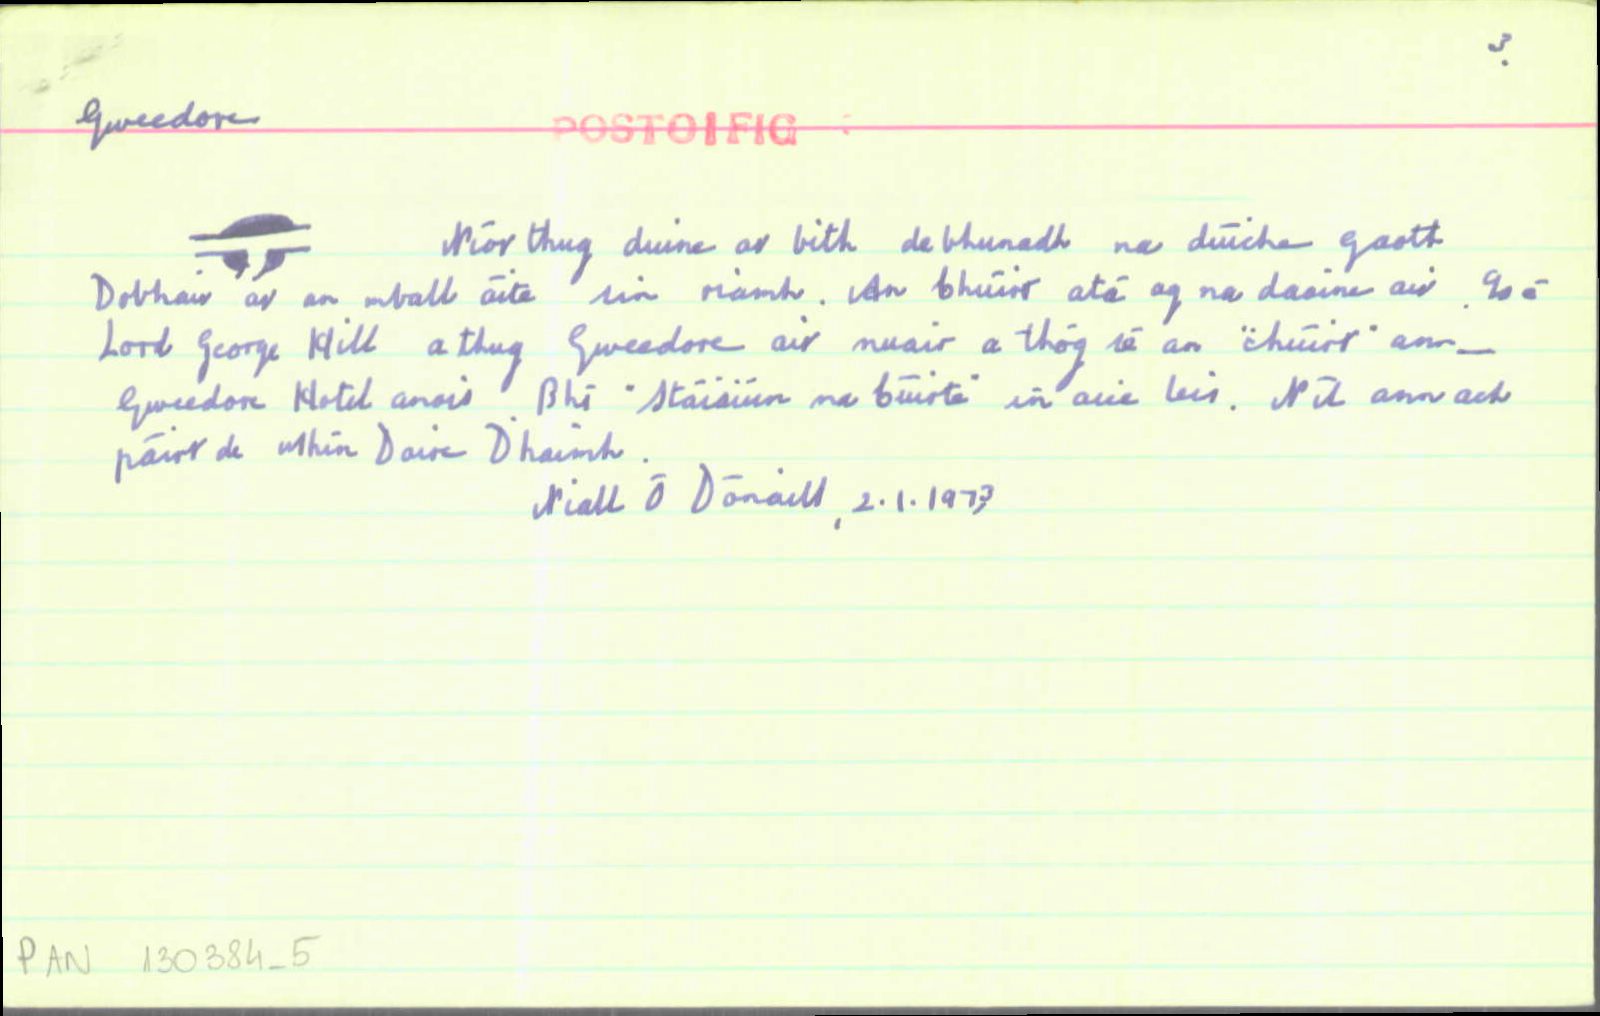 3.
Gweedore
POSTOIFIG
Níor thug duine ar bith de bhunadh na dúiche Gaoth
Dobhair ar an mball áite sin riamh. An Chúirt atá ag na daoine air. Is é
Lord George Hill a thug Gweedore air nuair a thóg sé an "chúirt" ann —
Gweedore Hotel anois. Bhí "Stáisiún na Cúirte" in aice leis. Níl ann ach
páirt de Mhín Doire Dhaimh.
Niall Ó Dónaill, 2.1.1973
PAN 130384_5